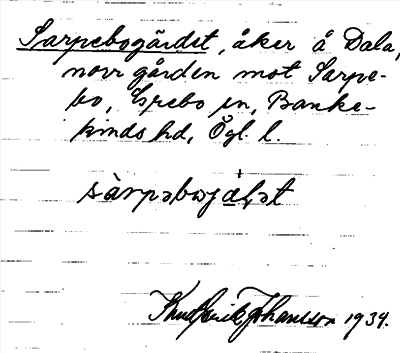 Sarpebogärdet, åker å Dala,
norr gården mot Sarpe-
bo, Grebo sn, Banke-
kinds hd, Ögl. l.
sàrpəboɷjæḷət
Knut Erik Johansson 1934.